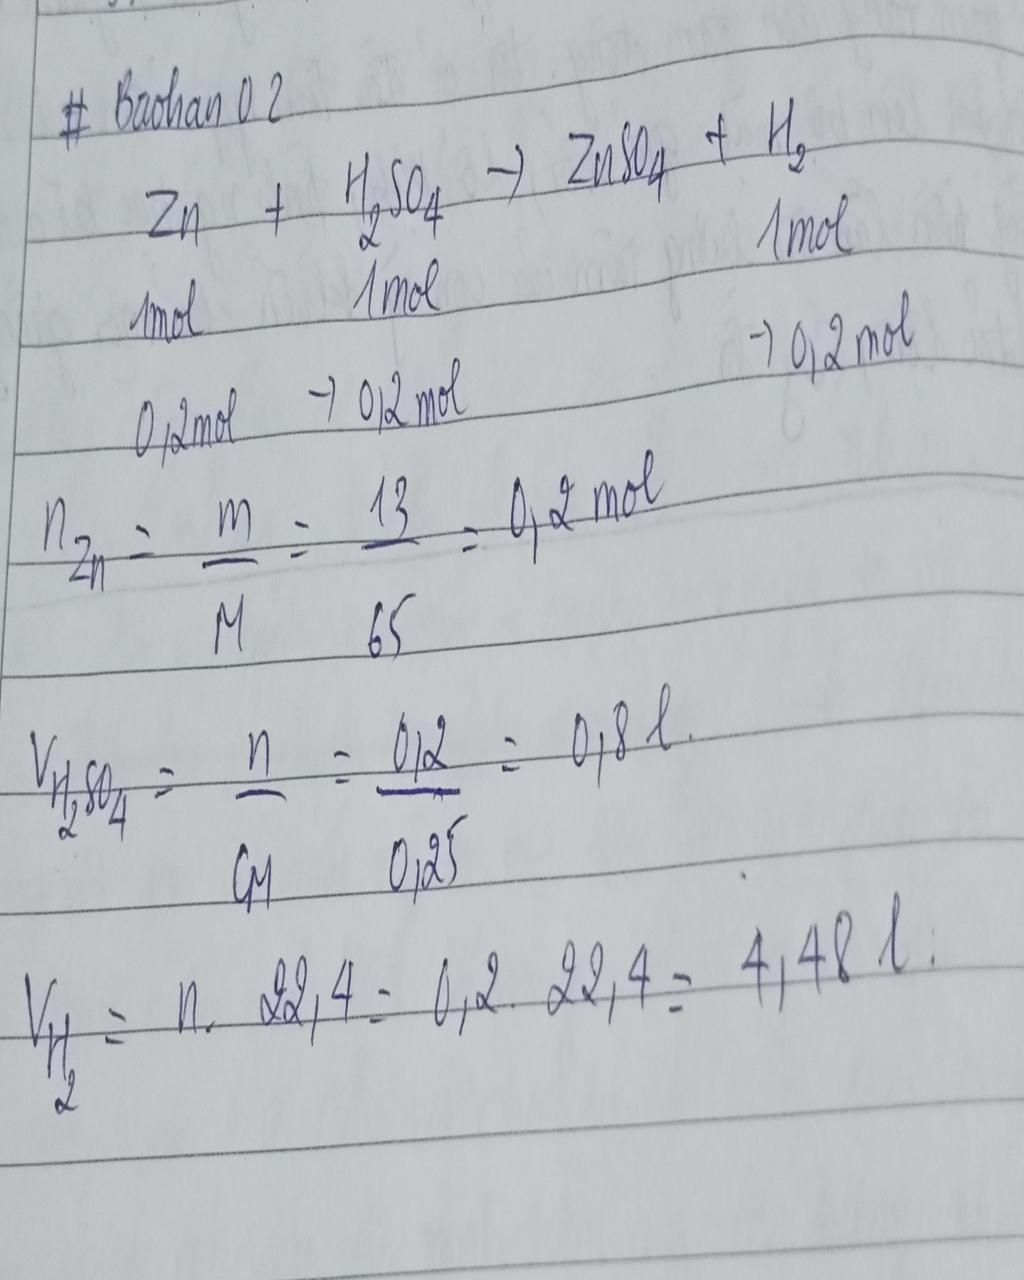 # Baohan 02
Zn + H₂SO₄ → ZnSO₄ + H₂
1mol 1mol 1mol
0,2mol → 0,2mol → 0,2mol
n_Zn = m/M = 13/65 = 0,2 mol
V_H₂SO₄ = n/CM = 0,2/0,25 = 0,8 l.
V_H₂ = n. 22,4 = 0,2. 22,4 = 4,48 l.